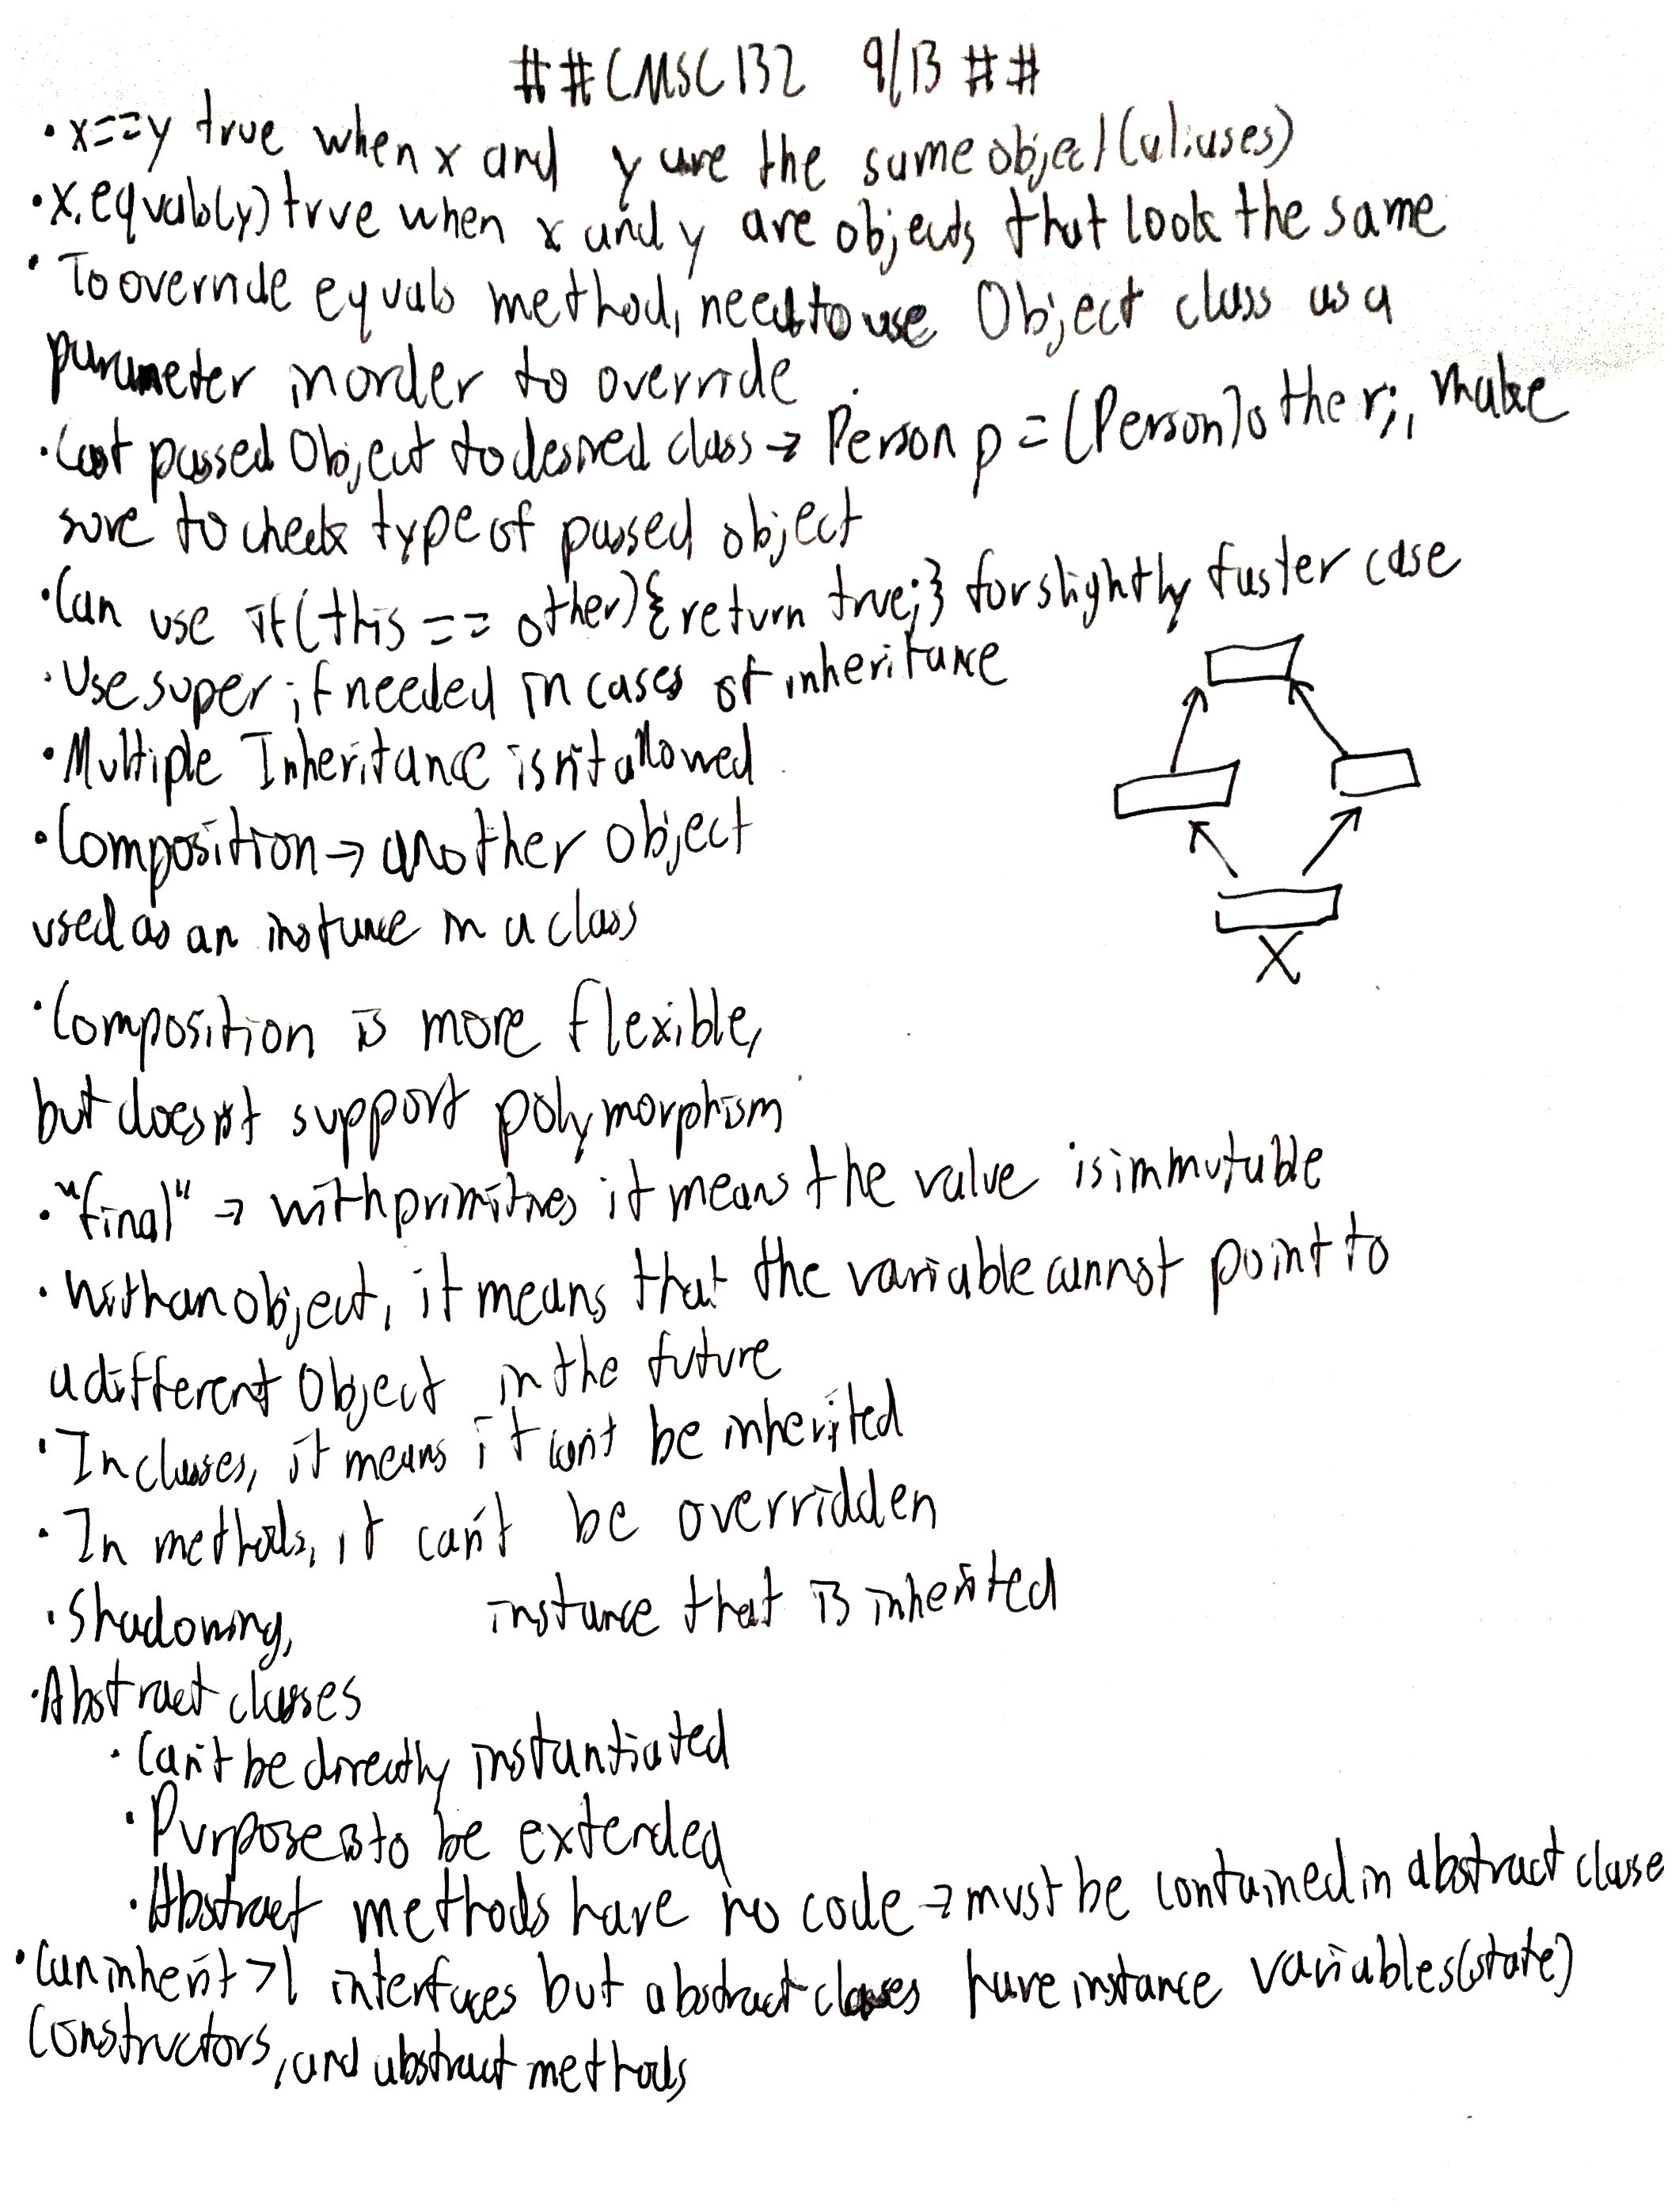 ##CMSC132 9/13 ##
• x==y true when x and y are the same object (aliases)
• x.equals(y) true when x and y are objects that look the same
• To override equals method, need to use Object class as a
parameter in order to override
• Cast passed Object to desired class → Person p = (Person)other;, make
sure to check type of passed object
• Can use if(this == other){return true;} for slightly faster case
• Use super if needed in cases of inheritance
• Multiple Inheritance isn't allowed
• Composition → another object
used as an instance in a class
X
• Composition is more flexible,
but doesn't support polymorphism
• "final" → with primitives it means the value is immutable
• With an object, it means that the variable cannot point to
a different Object in the future
• In classes, it means it can't be inherited
• In methods, it can't be overridden
• Shadowing, instance that is inherited
• Abstract classes
• Can't be directly instantiated
• Purpose is to be extended
• Abstract methods have no code → must be contained in abstract classe
• Can inherit >1 interfaces but abstract classes have instance variables(state)
Constructors, and abstract methods